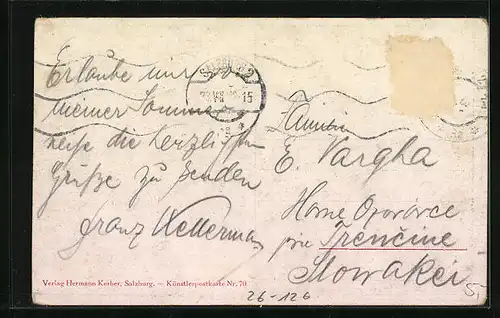 Erlaube mir von
meiner Sommer
reise die herzlichsten
Grüße zu senden
Franz Kellerman
SALZBURG 2
15
Familie
E. Vargha
Horne Oporovce
pri Trenčine
Slowakei
Verlag Hermann Kerber, Salzburg. — Künstlerpostkarte Nr. 70
26-126